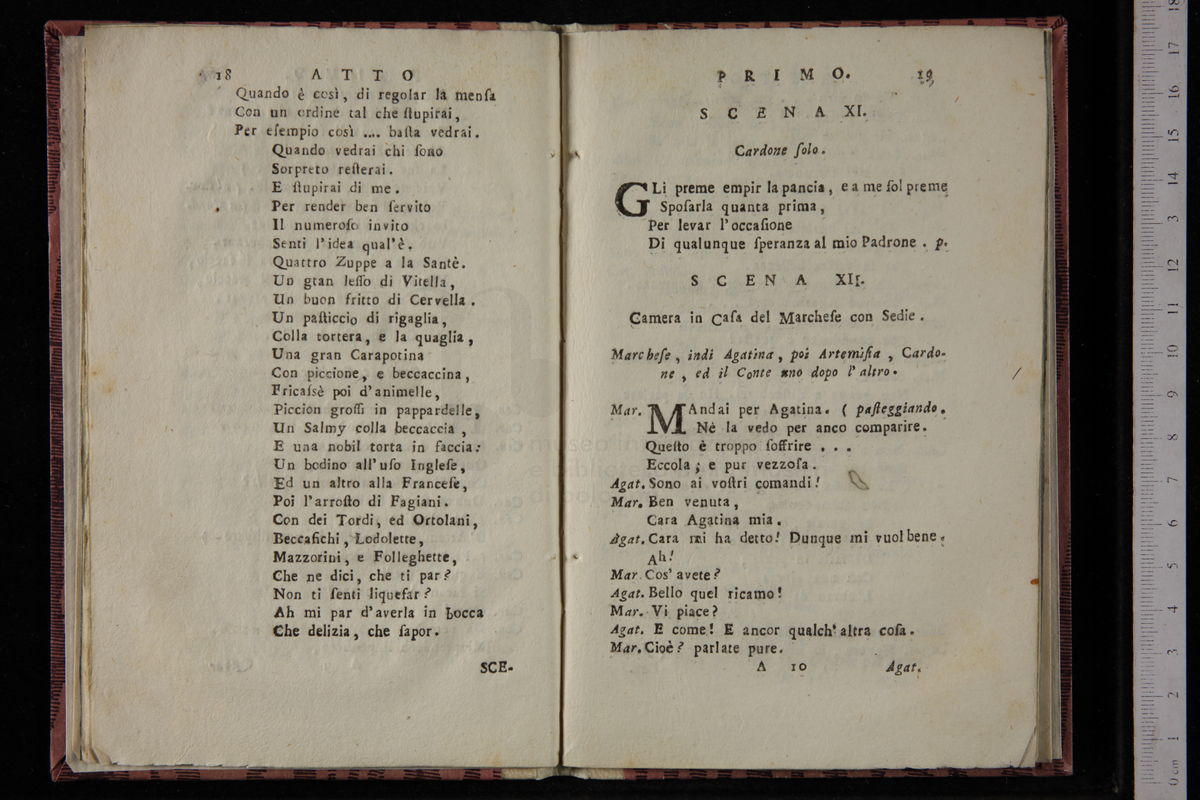 18 ATTO
Quando è così, di regolar la menſa
Con un ordine tal che ſtupirai,
Per eſempio così .... baſta vedrai.
Quando vedrai chi ſono
Sorpreto reſterai.
E ſtupirai di me.
Per render ben ſervito
Il numeroſo invito
Senti l'idea qual'è.
Quattro Zuppe a la Santè.
Un gtan leſſo di Vitella,
Un buon fritto di Cervella.
Un paſticcio di rigaglia,
Colla tortera, e la quaglia,
Una gran Carapotina
Con piccione, e beccaccina,
Fricaſsè poi d'animelle,
Piccion groſſi in pappardelle,
Un Salmy colla beccaccia,
E una nobil torta in faccia:
Un bodino all'uſo Ingleſe,
Ed un altro alla Franceſe,
Poi l'arroſto di Fagiani.
Con dei Tordi, ed Ortolani,
Beccafichi, Lodolette,
Mazzorini, e Folleghette,
Che ne dici, che ti par?
Non ti ſenti liquefar?
Ah mi par d'averla in bocca
Che delizia, che ſapor.
SCE-
PRIMO. 19
SCENA XI.
Cardone ſolo.
GLi preme empir la pancia, e a me ſol preme
Spoſarla quanta prima,
Per levar l'occaſione
Di qualunque ſperanza al mio Padrone. p.
SCENA XII.
Camera in Caſa del Marcheſe con Sedie.
Marcheſe, indi Agatina, poi Artemiſia, Cardo-
ne, ed il Conte uno dopo l'altro.
Mar. MAndai per Agatina. (paſſeggiando.
Nè la vedo per anco comparire.
Queſto è troppo ſoffrire ...
Eccola; e pur vezzoſa.
Agat. Sono ai voſtri comandi!
Mar. Ben venuta,
Cara Agatina mia.
Agat. Cara mi ha detto! Dunque mi vuol bene.
Ah!
Mar. Cos' avete?
Agat. Bello quel ricamo!
Mar. Vi piace?
Agat. E come! E ancor qualch' altra coſa.
Mar. Cioè? parlate pure.
A 10 Agat.